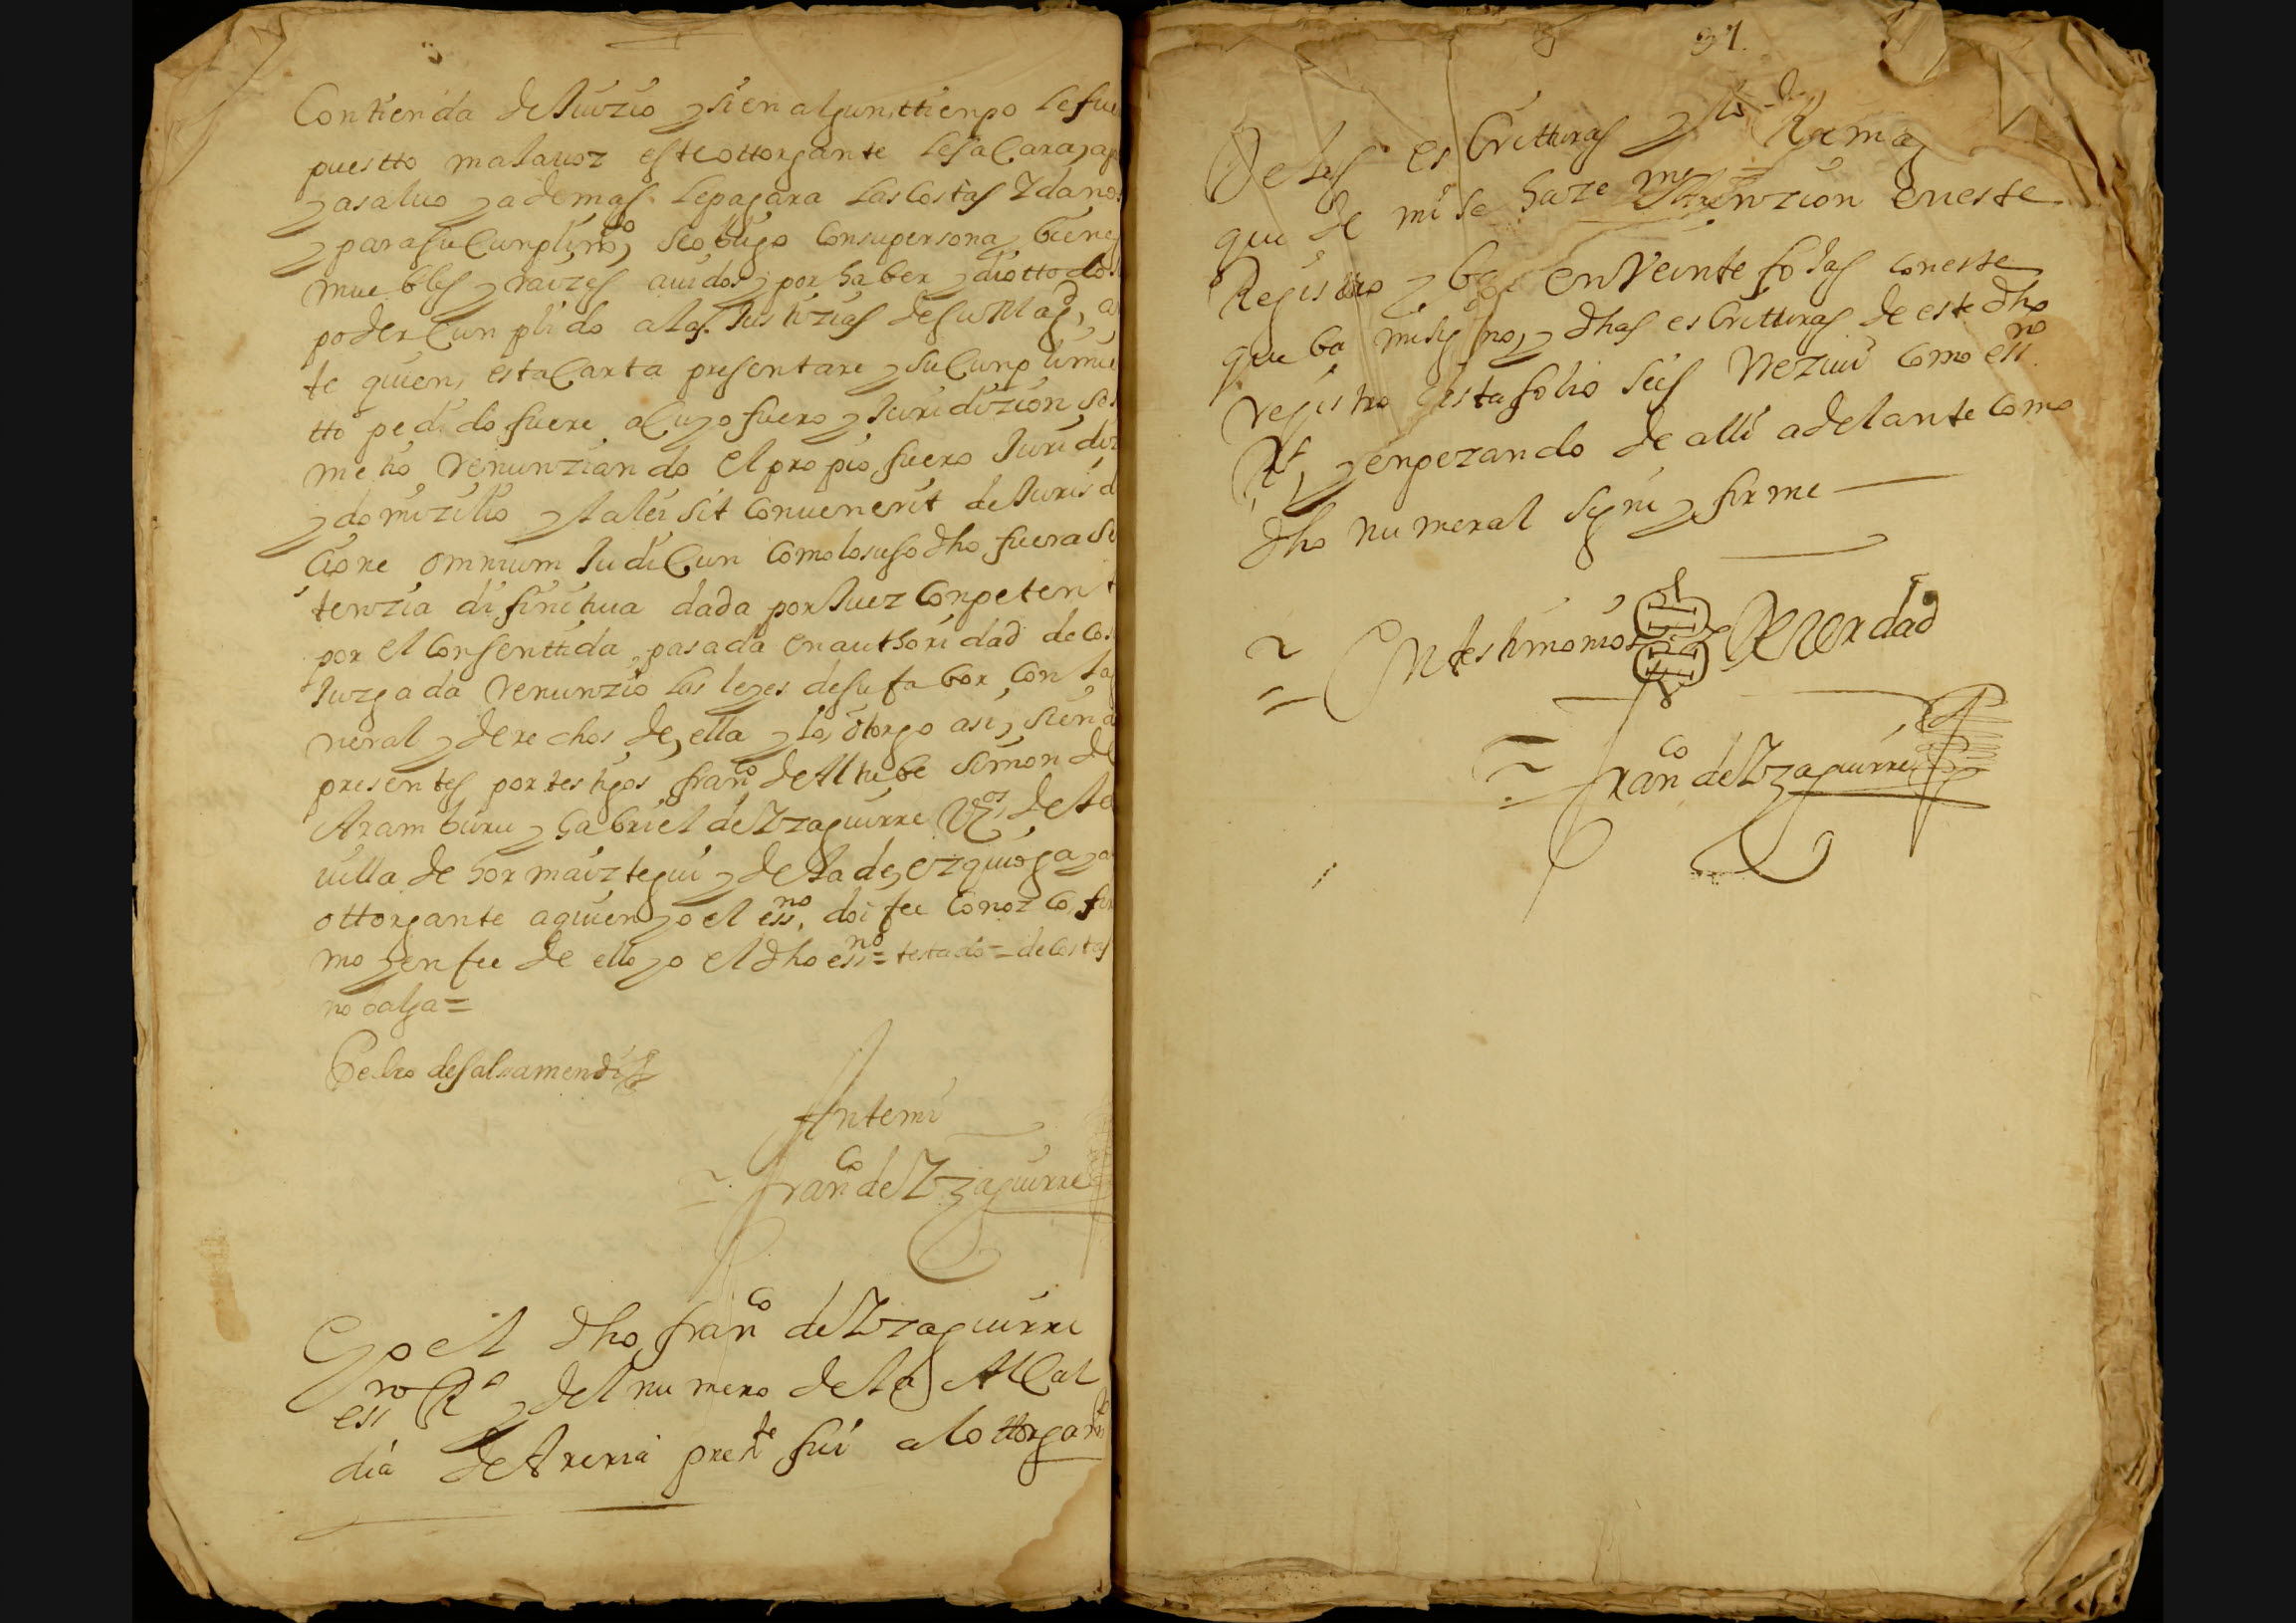 Contienda de Juizio y si en algun ttienpo le fue
puestto mala voz este ottorgante le sacara a
y a salvo y ademas le pagara las costas y dano
y para su cunplimto se obligo con su persona y biene
muebles y raizes avidos y por haber y dio ttodo
poder cunplido a las Justizias de su Magd, a
te quien esta Carta presentare y su cunplimie
tto pedido fuere a cuyo fuero y Juridizion so
metio renunziando el propio fuero Juridiz
y domizilio y la lei sit convenerit de Jurisd
cione omnium Judicun como lo suso dho fuera se
tenzia difinitiva dada por Juez conpetent
por el consenttida, pasada en authoridad de cos
Juzgada renunzio las leyes de su fabor con la
neral y derechos de ella y lo otorgo asi, sien
presentes por testigos franco de Altube Simon de
Aramburu y Gabriel de Yzaguirre Vzos de la
villa de hormaiztegui y de la de ezquioga y a
ottorgante a quien yo el essno doi fee conozco, fir
mo y en fee de ello yo el dho essno = testado = de costas
no balga =
Pedro de salsamendi
Ante mi
franco de Yzaguirre
E yo el dho franco de Yzaguirre
essno Rl y del numero de la Alcal
dia de Areria preste fui a lo ottorgamto
31.
De las escritturas
que de mi se haze menzion en este
Registro y ba en veinte fojas con este
que ba mi signo, y dhas escritturas de este dho
registro asta folio seis rezivi como essno
Rl, y enpezando de alli adelante como
dho numeral signe y firme
En testimonio de Verdad
franco de Yzaguirre